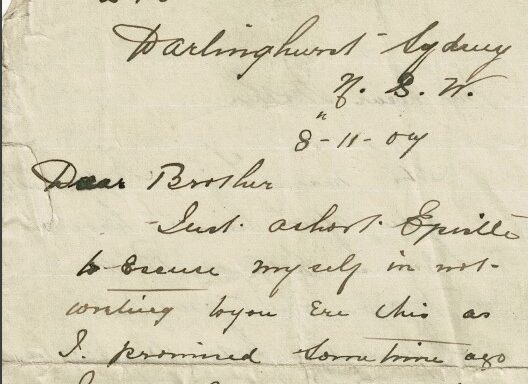 Darlinghurst - Sydney
N. S. W.
8" - 11 - 04
Dear Brother
Just. a short. Epistle
to Escuse my self in not-
writing to you Ere this as
I. promised some time ago